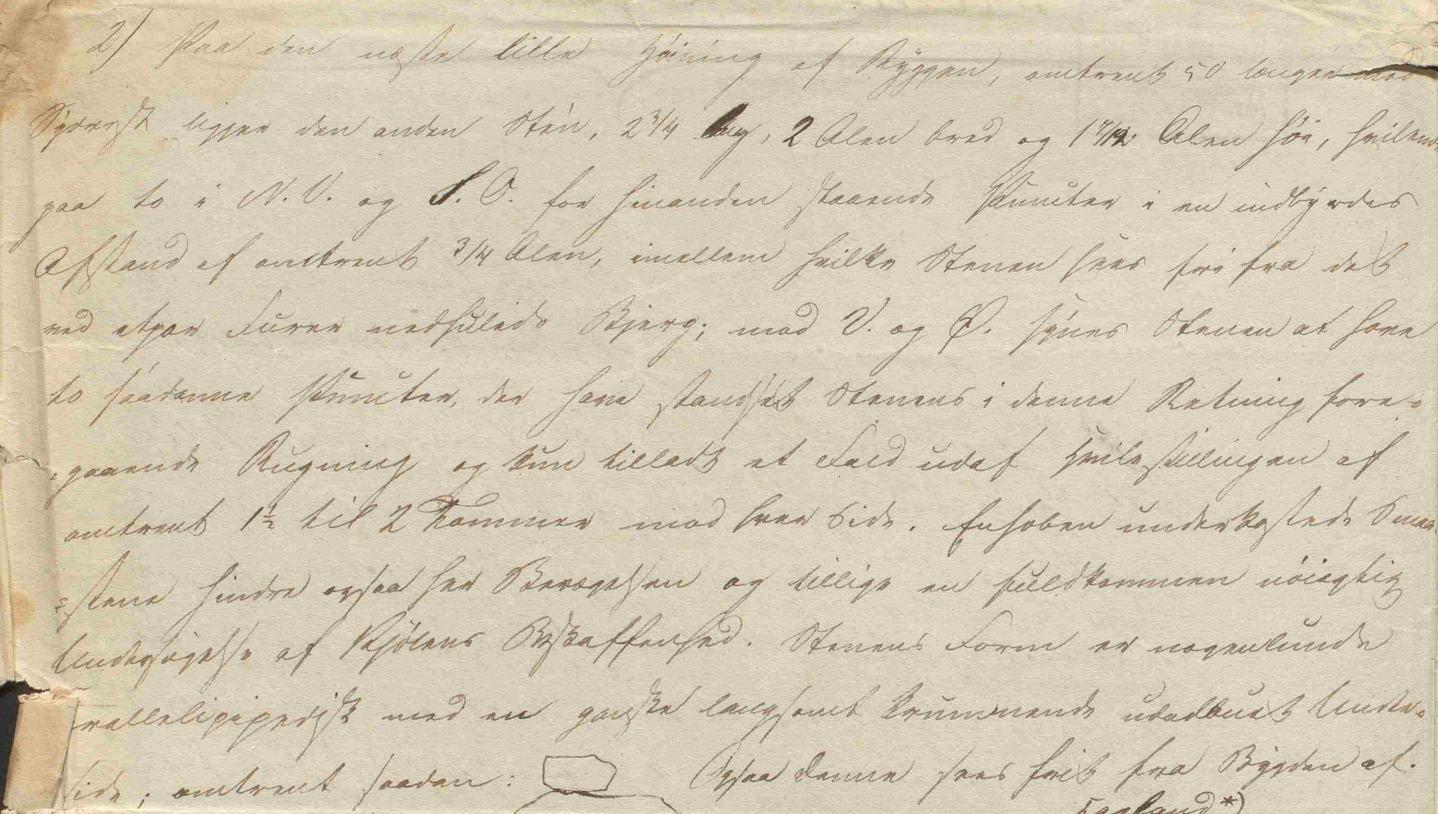 2) Paa den næste lille Høining af Ryggen, omtrent 50 længer mod
Sydvest ligger den anden Sten, 2 3/4 lang, 2 Alen bred og 1 7/12 Alen høi, hvilende
paa to i N.V. og S.O. for hinanden staaende Puncter i en indbyrdes
Afstand af omtrent 3/4 Alen, imellem hvilke Stenen sees fri fra det
ved etpar Furer nedhulede Bjerg; mod V. og Ø. synes Stenen at have
to saadanne Puncter, der have standset Stenens i denne Retning fore-
=gaaende Rugning og kun tilladt et Fald udaf Hvilestillingen af
omtrent 1½ til 2 Tommer mod hver Side. Enhoben underkastede Smaa-
=stene hindre ogsaa her Bevægelsen og tillige en fuldkommen nöiagtig
Undersøgelse af Kjølens Beskaffenhed. Stenens Form er nogenlunde
rallelipipedisk med en ganske langsomt krummende udadbuet Under-
side; omtrent saadan: Ogsaa denne sees frit fra Bygden af.